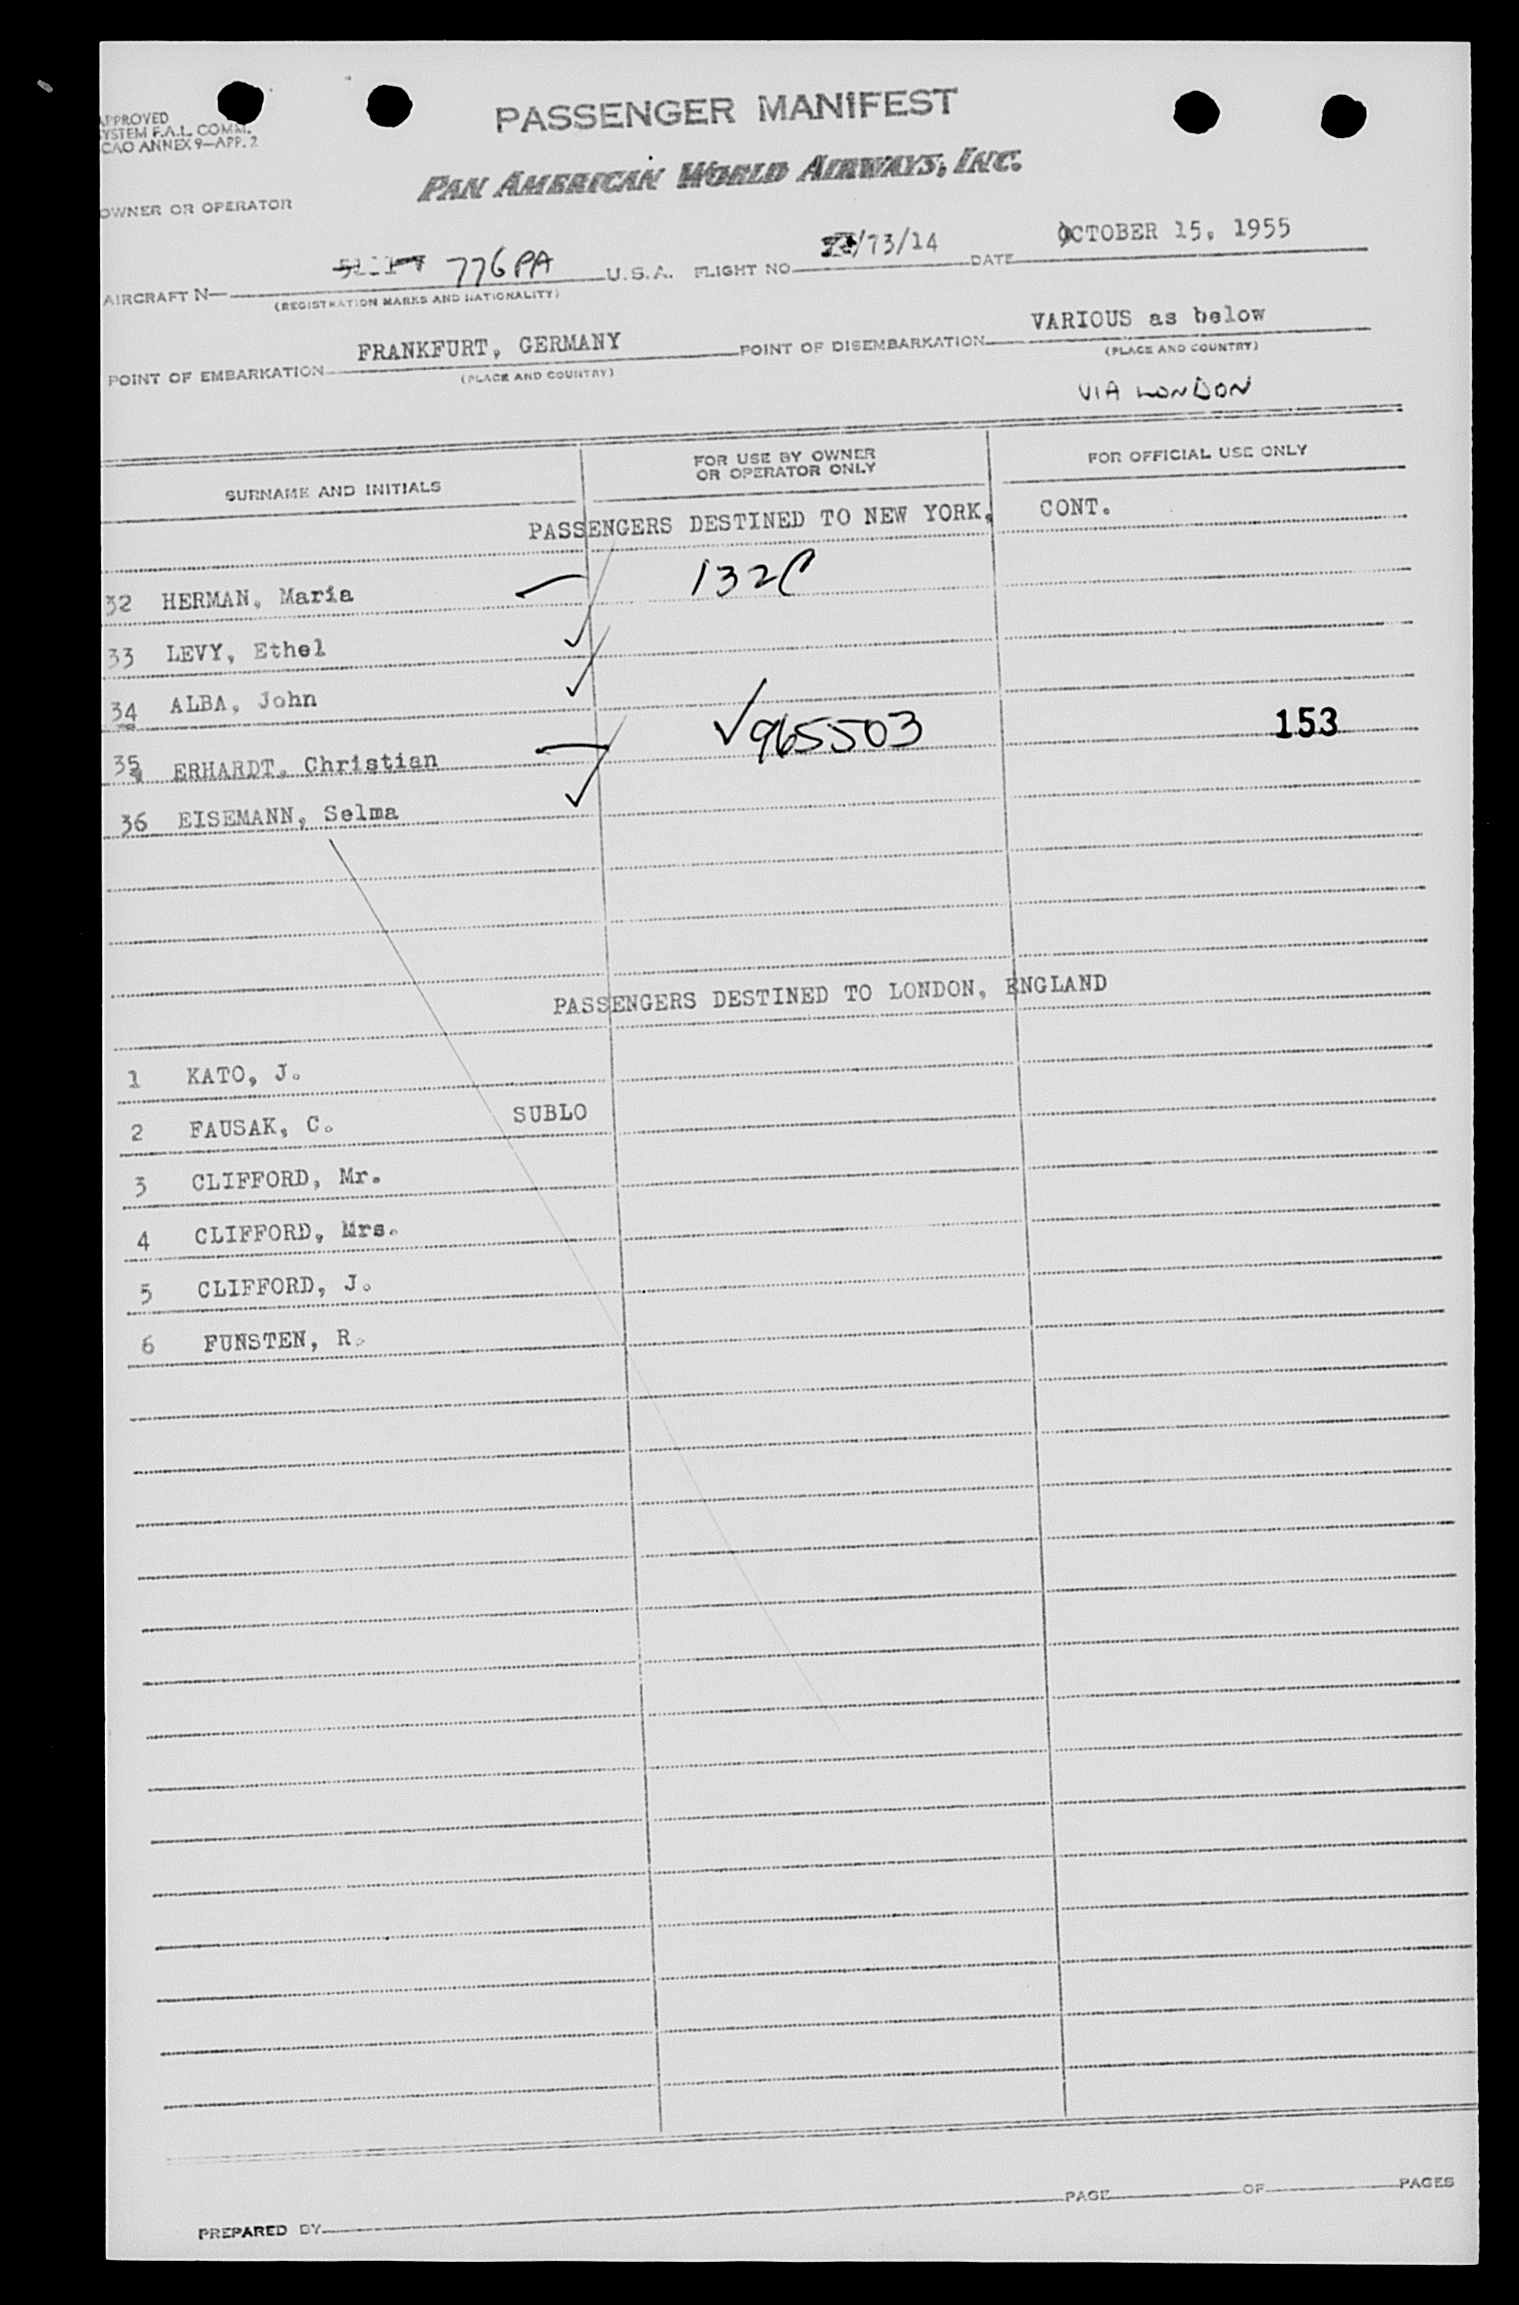 APPROVED
YSTEM F.A.L. COMM.
CAO ANNEX 9—APP. 2
PASSENGER MANIFEST
PAN AMERICAN WORLD AIRWAYS, INC.
OWNER OR OPERATOR
AIRCRAFT N— 776PA U.S.A. FLIGHT NO /73/14 DATE OCTOBER 15, 1955
(REGISTRATION MARKS AND NATIONALITY)
POINT OF EMBARKATION FRANKFURT, GERMANY POINT OF DISEMBARKATION VARIOUS as below
(PLACE AND COUNTRY) (PLACE AND COUNTRY)
VIA LONDON
SURNAME AND INITIALS FOR USE BY OWNER OR OPERATOR ONLY FOR OFFICIAL USE ONLY
PASSENGERS DESTINED TO NEW YORK, CONT.
32 HERMAN, Maria 132C
33 LEVY, Ethel
34 ALBA, John
35 ERHARDT, Christian 965503 153
36 EISEMANN, Selma
PASSENGERS DESTINED TO LONDON, ENGLAND
1 KATO, J.
2 FAUSAK, C. SUBLO
3 CLIFFORD, Mr.
4 CLIFFORD, Mrs.
5 CLIFFORD, J.
6 FUNSTEN, R.
PREPARED BY PAGE OF PAGES